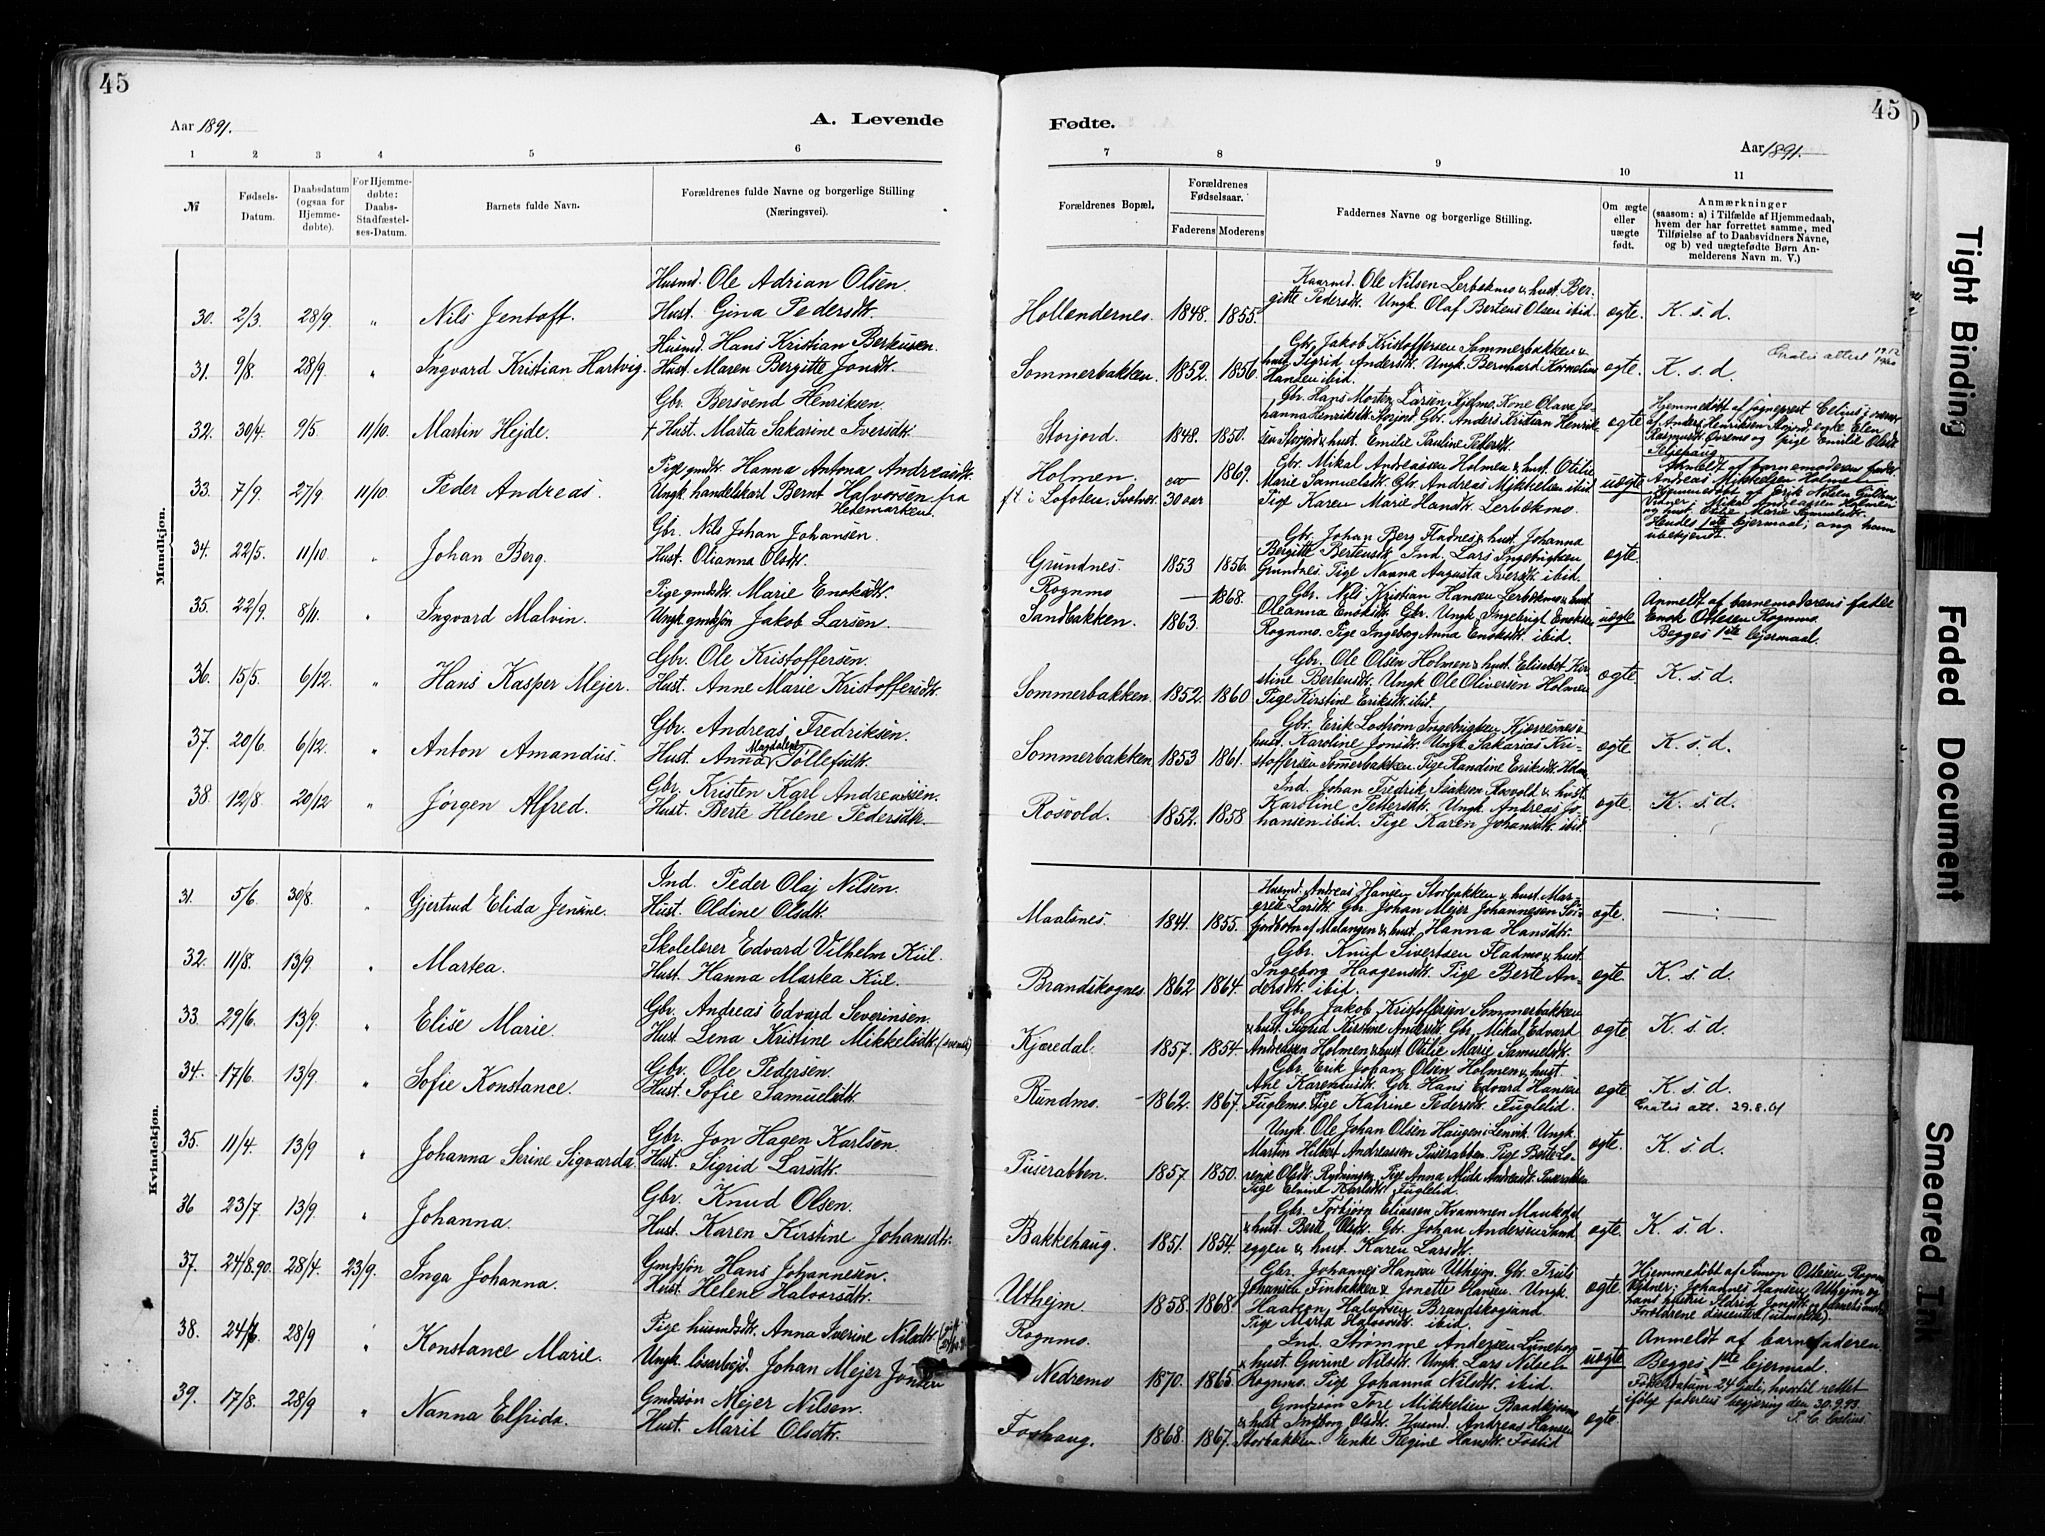 45
Aar 1891.
A. Levende
1 2 3 4 5 6
№
Fødsels-
Datum.
Daabsdatum
(ogsaa for
Hjemme-
døbte).
For Hjemme-
døbte:
Daabs-
Stadfæstel-
ses-Datum.
Barnets fulde Navn.
Forældrenes fulde Navne og borgerlige Stilling
(Næringsvei).
Mandkjøn.
Husmd. Ole Adrian Olsen.
30. 2/3. 28/9. „ Nils Jentoft. Hust. Gina Pedersdt.
Husmd. Hans Kristian Berteusen.
31. 9/8. 28/9. „ Ingvard Kristian Hartvig. Hust. Maren Bergitte Jonsdt.
Gbr. Bersvend Henriksen.
32. 30/4. 9/5. 11/10. Martin Hejde. † Hust. Marta Sakarine Iversdt.
Pige gmdt. Hanna Antona Andreasdt.
33. 7/9. 27/9. 11/10. Peder Andreas. Ungk. handelskarl Bernt Halvorsen fra
Hedemarken.
Gbr. Nils Johan Johansen.
34. 22/5. 11/10. „ Johan Berg. Hust. Olianna Olsdt.
Pige gmdsdt. Marie Enoksdt.
35. 22/9. 8/11. „ Ingvard Malvin. Ungk. gmdsøn Jakob Larsen.
Gbr. Ole Kristoffersen.
36. 15/5. 6/12. „ Hans Kasper Mejer. Hust. Anne Marie Kristoffersdt.
Gbr. Andreas Fredriksen.
Magdalene
37. 20/6. 6/12. „ Anton Amandus. Hust. Anna Tollefsdt.
Gbr. Kristen Karl Andreassen.
38. 12/8. 20/12 „ Jørgen Alfred. Hust. Berte Helene Pedersdt.
Kvindekjøn.
Ind. Peder Olaj Nilsen.
31. 5/6. 30/8. „ Gjertrud Elida Jensine. Hust. Oldine Olsdt.
Skolelærer Edvard Vilhelm Kiil.
32. 11/8. 13/9. „ Martea. Hust. Hanna Martea Kiil.
Gbr. Andreas Edvard Severinsen.
33. 29/6. 13/9. „ Elise Marie. Hust. Lena Kristine Mikkelsdt.
Gbr. Ole Pedersen.
34. 17/6. 13/9. „ Sofie Konstance. Hust. Sofie Samuelsdt.
Gbr. Jon Hagen Karlsen.
35. 11/4. 13/9 „ Johanna Serine Sigvarda. Hust. Sigrid Larsdt.
Gbr. Knud Olsen.
36 23/7. 13/9. „ Johanna. Hust. Karen Kirstine Johansdt.
Gmdsøn Hans Johannesen.
37. 24/8.90. 28/4. 23/9. Inga Johanna. Hust. Helene Halvorsdt.
Pige husmdsdt. Anna Iverine Nilsdt.
38. 24/6. 28/9 „ Konstance Marie. Ungk. løsarbejd. Johan Mejer Jonsen
Gmdssøn Mejer Nilsen.
39. 17/8. 28/9 „ Nanna Elfrida. Hust. Marit Olsdt.
45
Fødte.
Aar 1891.
7 8 9 10 11
Forældrenes Bopæl.
Forældrenes
Fødselsaar.
Faderens Moderens
Faddernes Navne og borgerlige Stilling.
Om ægte
eller
uægte
født.
Anmærkninger
(saasom: a) i Tilfælde af Hjemmedaab,
hvem der har forrettet samme, med
Tilføielse af to Daabsvidners Navne,
og b) ved uægtefødte Børn An-
melderens Navn m. V.)
Kaarmd. Ole Nilsen Lerbækmo & hust. Ber-
gitte Pedersdt. Ungk. Olaf Bertens Olsen ibid.
Hollendernes. 1848. 1855. ægte. K. s. d.
Gbr. Jakob Kristoffersen Sommerbakken &
hust. Sigrid Andersdt. Ungk. Bernhard Kornelius
Hansen ibid.
Sommerbakken. 1852. 1856. ægte. K. s. d.
Gratis attest
Gbr. Hans Morten Larsen Kjelmo. Kone Olava Jo-
hanna Henriksdt. Storjord. Gbr. Anders Kristian Henrik-
sen Storjord & hust. Emilie Pauline Pettersdt.
Storjord. 1848. 1850. ægte.
Hjemmedøbt af sogneprest Celius;
af Anders Henriksen Storjord, Elen
Rasmusdt. Øvremo og pige Emilie Olsdt.
Gbr. Mikal Andreassen Holmen & hust. Otilie
Marie Samuelsdt. Gbr. Andreas Mikkelsen ibid.
Pige Karen Marie Hansdt. Lerbækmo.
Holmen. 1869. uægte
ft. i Lofoten, Svolvær. 30 aar
Anmeldt af barnemoderens fader
Andreas Mikkelsen Holmen
Hendes 1ste lejermaal; ang. ham
ubekjendt.
Gbr. Johan Berg Fladnes & hust. Johanna
Bergitte Bertensdt. Ind. Lars Ingebrigtsen
Grundnes. Pige Nanna Augusta Iversdt. ibid.
Grundnes. 1853 1856. ægte.
Gbr. Nils Kristian Hansen Lerbækmo & hust.
Oleanna Enoksdt. Gbr. Ungk. Ingebrigt Enoksen
Rognmo. Pige Ingeborg Anna Enoksdt. ibid.
Rognmo — 1868.
Sandbakken. 1863. uægte
Anmeldt af barnemoderens fader
Enok Ottesen Rognmo.
Begges 1ste lejermaal.
Gbr. Ole Olsen Holmen & hust. Elisabet Kir-
stine Bertensdt. Ungk. Ole Oliversen Holmen
Pige Kirstine Eriksdt. ibid.
Sommerbakken. 1852. 1860 ægte K. s. d.
Gbr. Erik Lostrøm Ingebrigtsen Kjerresnes &
hust. Karoline Jonsdt. Ungk. Sakarias Kri-
stoffersen Sommerbakken. Pige Randine Eriksdt. Holm.
Sommerbakken 1853 1861. ægte. K. s. d.
Ind. Johan Fredrik Isaksen Rosvold & hust.
Karoline Pettersdt. Ungk. Andreas Jo-
hansen ibid. Pige Karen Johansdt. ibid.
Rosvold. 1852. 1858 ægte. K. s. d.
Husmd. Andreas Hansen Storbakken & hust. Mar-
grete Larsdt. Gbr. Johan Mejer Johannesen
af Malangen & hust. Hanna Hansdt.
Maalsnes. 1841. 1855. ægte. —
Gbr. Knut Sivertsen Fladmo & hust.
Ingeborg Haagensdt. Pige Berte An-
dersdt. ibid.
Brandskognes. 1862 1864. ægte. K. s. d.
Gbr. Jakob Kristoffersen Sommerbakken
& hust. Sigrid Kirstine Andersdt. Gbr. Mikal Edvard
Andreassen Holmen & hust. Otilie Marie Samuelsdt.
Kjæredal. 1857. 1854. ægte. K. s. d.
Gbr. Erik Johan Olsen Holmen & hust.
Ane Karensdt. Gbr. Hans Edvard Hansen
Fuglemo. Pige Katrine Pedersdt. Fuglelid.
Rundmo. 1862. 1867. ægte. K. s. d.
Gratis att. 29.8.01
Ungk. Ole Johan Olsen Haugen i Lenvik. Ungk.
Martin Hilbert Andreassen Puserabben. Pige Berte Lo-
rense Olsdt. Rydningen. Pige Anna Alida Andreasdt. Puserabben
Pige Elvine Karlsdt. Fuglelid.
Puserabben. 1857. 1850. ægte. K. s. d.
Gbr. Torbjørn Eliassen Kvammen Maukdal
& hust. Berte Olsdt. Gbr. Johan Andersen Sand
eggen & hust. Karen Larsdt.
Bakkehaug. 1851. 1854. ægte. K. s. d.
Gbr. Johannes Hansen Uthejm. Gbr. Truls
Johansen Finbakken & Jonette Hansen. Ungk.
Haakon Halvorsen Brandskogland
Pige Marta Halvorsdt. ibid.
Uthejm 1858. 1868. ægte.
Hjemmedøbt af Simon Ottesen Rognmo
Vidner; Johannes Hansen Uthejm og
hans hustru
Forældrene dissentere (udmeldte).
Ind. Strømme Andersen Lyneborg
& hust. Gurine Nilsdt. Ungk. Lars Nilsen
Rognmo. Pige Johanna Nilsdt. ibid.
Rognmo.
Nedremo 1870. 1865. uægte
Anmeldt af barnefaderen
Begges 1ste lejermaal
Fødselsdatum 24 juli, hvortil rettet
ifølge faderens begjering den 30.9.93.
P. C. Celius.
Gmdssøn Tore Mikkelsen Baadkjernmo
& hust. Ingeborg Olsdt. Husmd. Andreas Hansen
Storbakken. Enke Regine Hansdt. Foslid
Foshaug. 1868. 1867. ægte.
Tight Binding
Faded Document
Smeared Ink